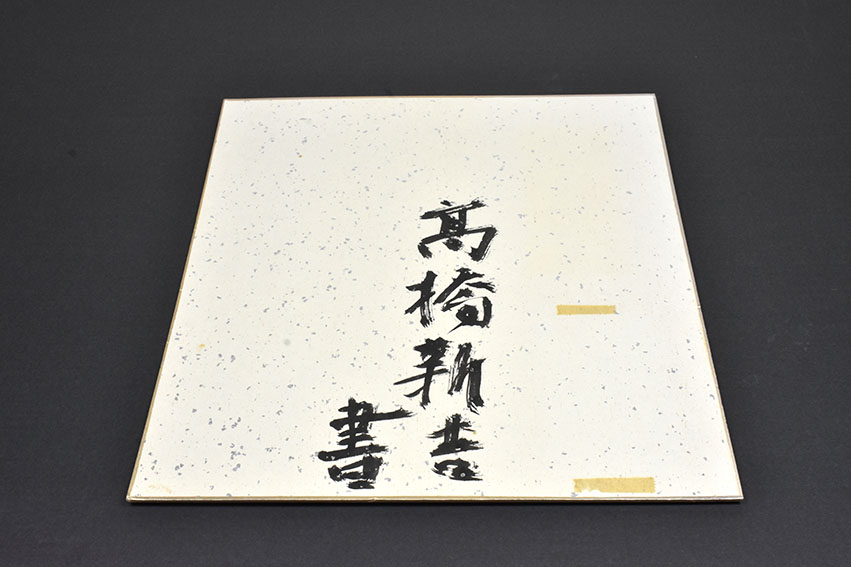 高橋新吉
書